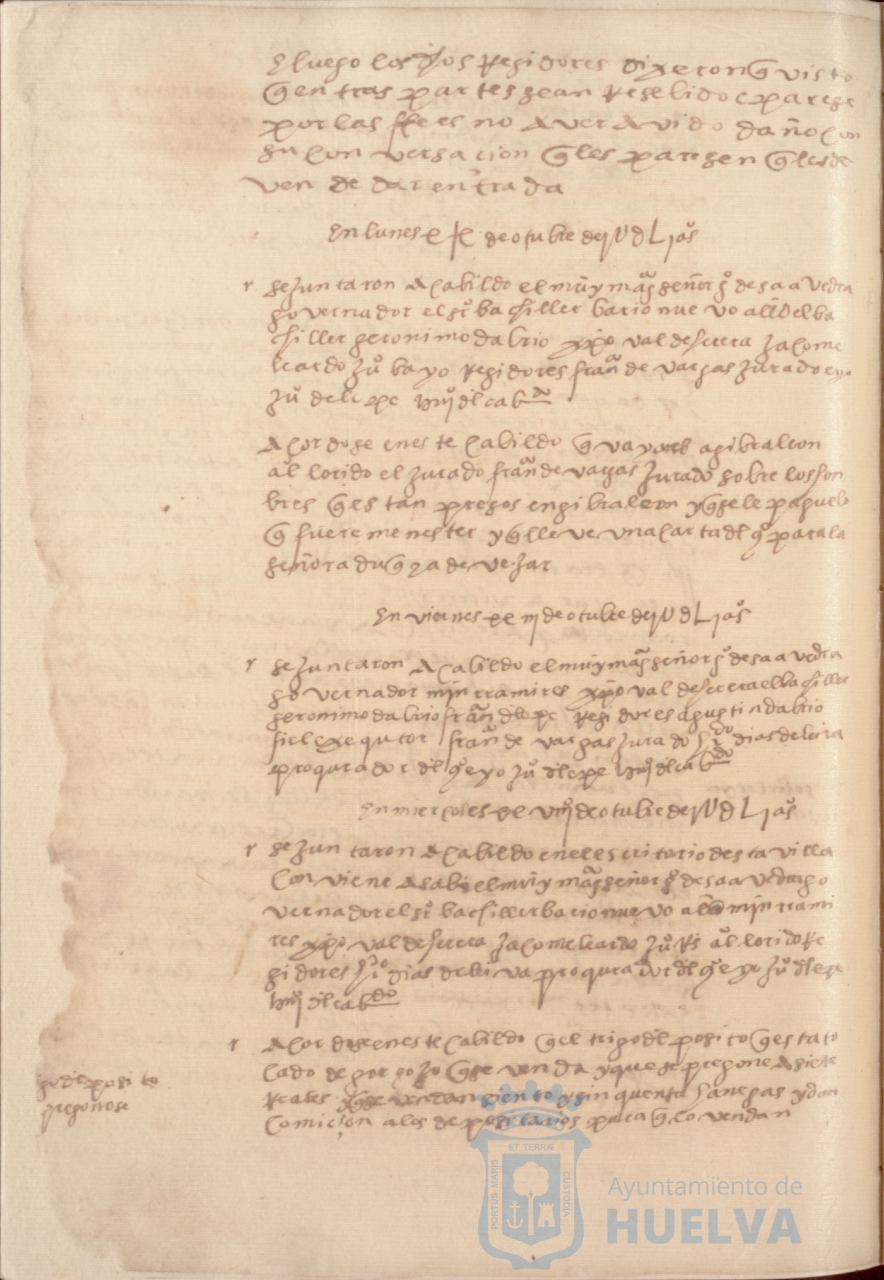 E luego los dhos Regidores dixeron q visto
q en tras partes sean Resebido e parese
por las ffees no aver avido daño con
su conversacion q les paresen q les de
ven de dar entrada
En lunes de otubre de años
se juntaron a cabildo el muy mag señor g de saavedra
governador el sr bachiller barionuevo allde el ba
chiller geronimo dabrio xpo val de herrera jacome
leardo ju bayo Regidores fran de vargas jurado e yo
ju de lepe del cab
Acordose en este cabildo q vaya a gibraleon
al lorido el jurado fran de vargas jurado sobre los hon
bres q estan presos en gibraleon y q se le pague lo
q fuere menester y q lleve una carta del para la
señora duqsa de vejar
En viernes de otubre de años
se juntaron a cabildo el muy mag señor g de saavedra
governador min rramires xpo val de herrera el bachiller
geronimo dabrio fran de lepe Regidores agustin dabrio
fiel exequtor fran de vargas jurado dias de leiva
procurador del e yo ju de lepe del cabdo
En miercoles de otubre de años
se juntaron a cabildo en el escritorio desta villa
conviene a saber el muy mag señor g de saavedra go
vernador el sr bachiller barionuevo allde min rrami
res xpo val de herrera jacome leardo ju al lorido Re
gidores dias de leiva procurador del e yo ju de lepe
del cabdo
Acordose en este cabildo q el trigo del posito q esta to
cado de gorgojo q se venda y que se pregone a siete
Reales y q se vendan siento y sinquenta hanegas y dan
comicion a los depositarios para q lo vendan
posito
pregonose
PORTUS MARIS ET TERRAE CUSTODIA
Ayuntamiento de
HUELVA